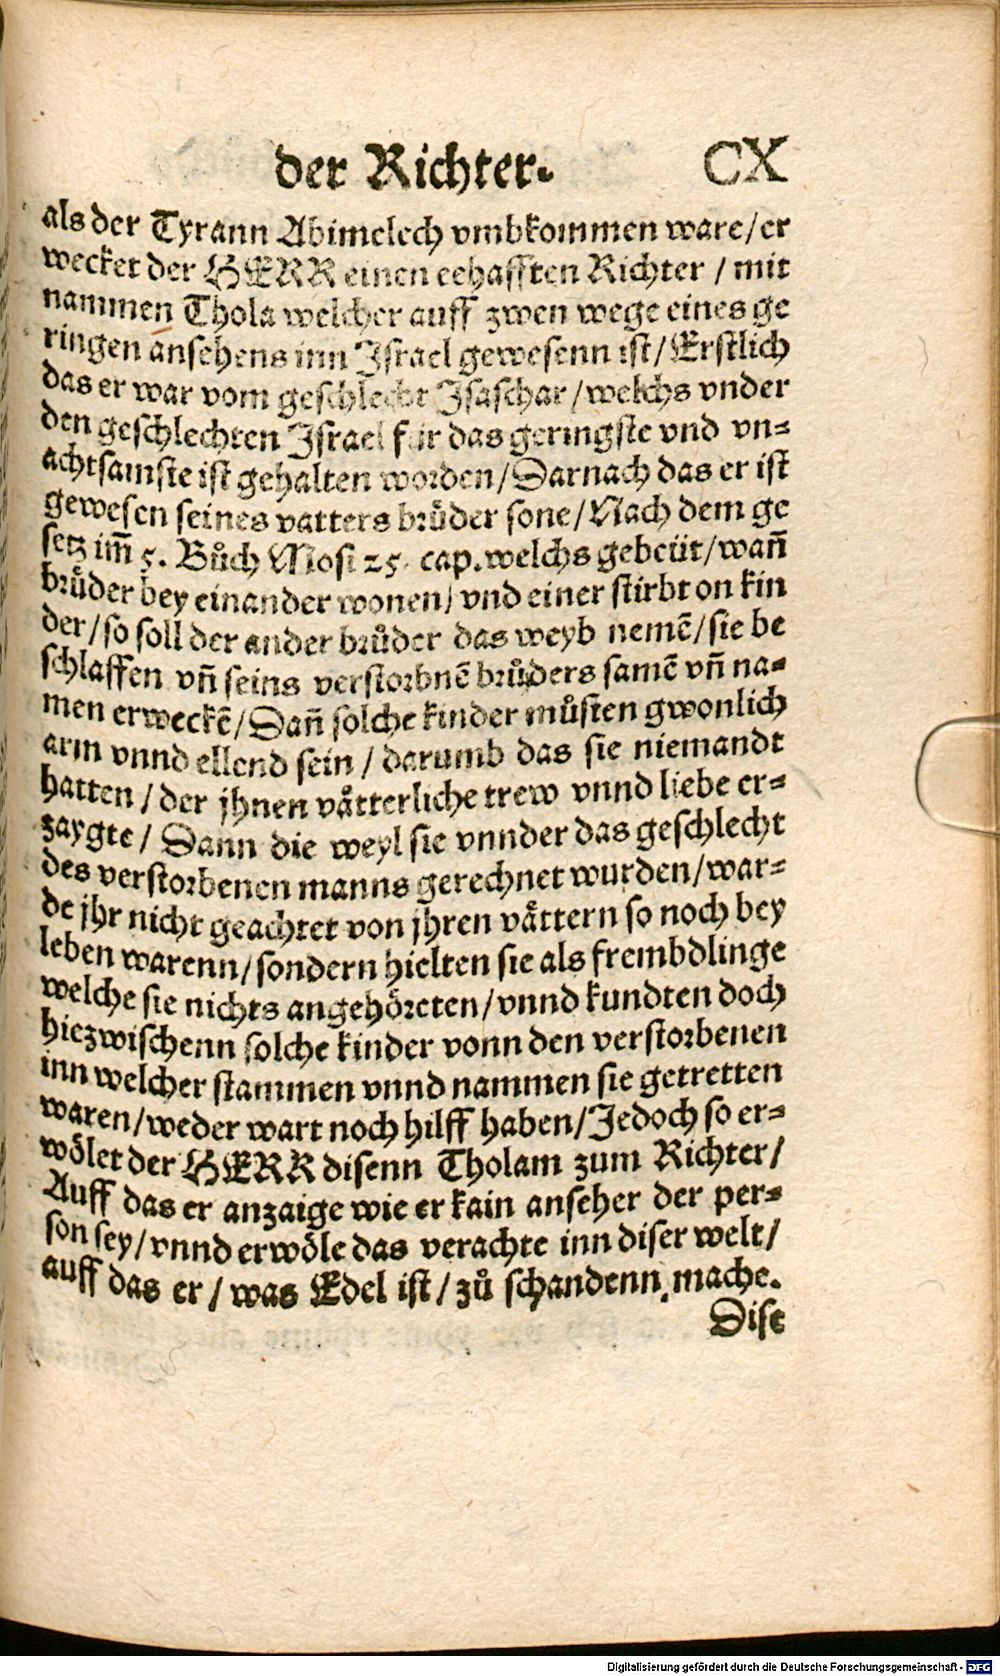 der Richter.
CX
als der Tyrann Abimelech vmbkommen ware/er
wecket der HERR einen eehafften Richter / mit
nammen Thola welcher auff zwen wege eines ge
ringen ansehens inn Israel gewesenn ist/Erstlich
das er war vom geschlecht Isaschar/welchs vnder
den geschlechten Israel für das geringste vnd vn=
achtsamste ist gehalten worden/Darnach das er ist
gewesen seines vatters brůder sone/Nach dem ge
setz im̃ 5. Bůch Mosi 25. cap.welchs gebeüt/wañ
brüder bey einander wonen/ vnd einer stirbt on kin
der/so soll der ander brůder das weyb nemẽ/sie be
schlaffen vñ seins verstorbnẽ brůders samẽ vñ na=
men erweckẽ/Dañ solche kinder můsten gwonlich
arm vnnd ellend sein / darumb das sie niemandt
hatten / der jhnen våtterliche trew vnnd liebe er=
zaygte/ Dann die weyl sie vnnder das geschlecht
des verstorbenen manns gerechnet wurden/war=
de jhr nicht geachtet von jhren våttern so noch bey
leben warenn/sondern hielten sie als frembdlinge
welche sie nichts angehöreten/vnnd kundten doch
hiezwischenn solche kinder vonn den verstorbenen
inn welcher stammen vnnd nammen sie getretten
waren/weder wart noch hilff haben/Jedoch so er=
wölet der HERR disenn Tholam zum Richter/
Auff das er anzaige wie er kain anseher der per=
son sey/vnnd erwöle das verachte inn diser welt/
auff das er / was Edel ist/ zů schandenn mache.
Dise
Digitalisierung gefördert durch die Deutsche Forschungsgemeinschaft - DFG